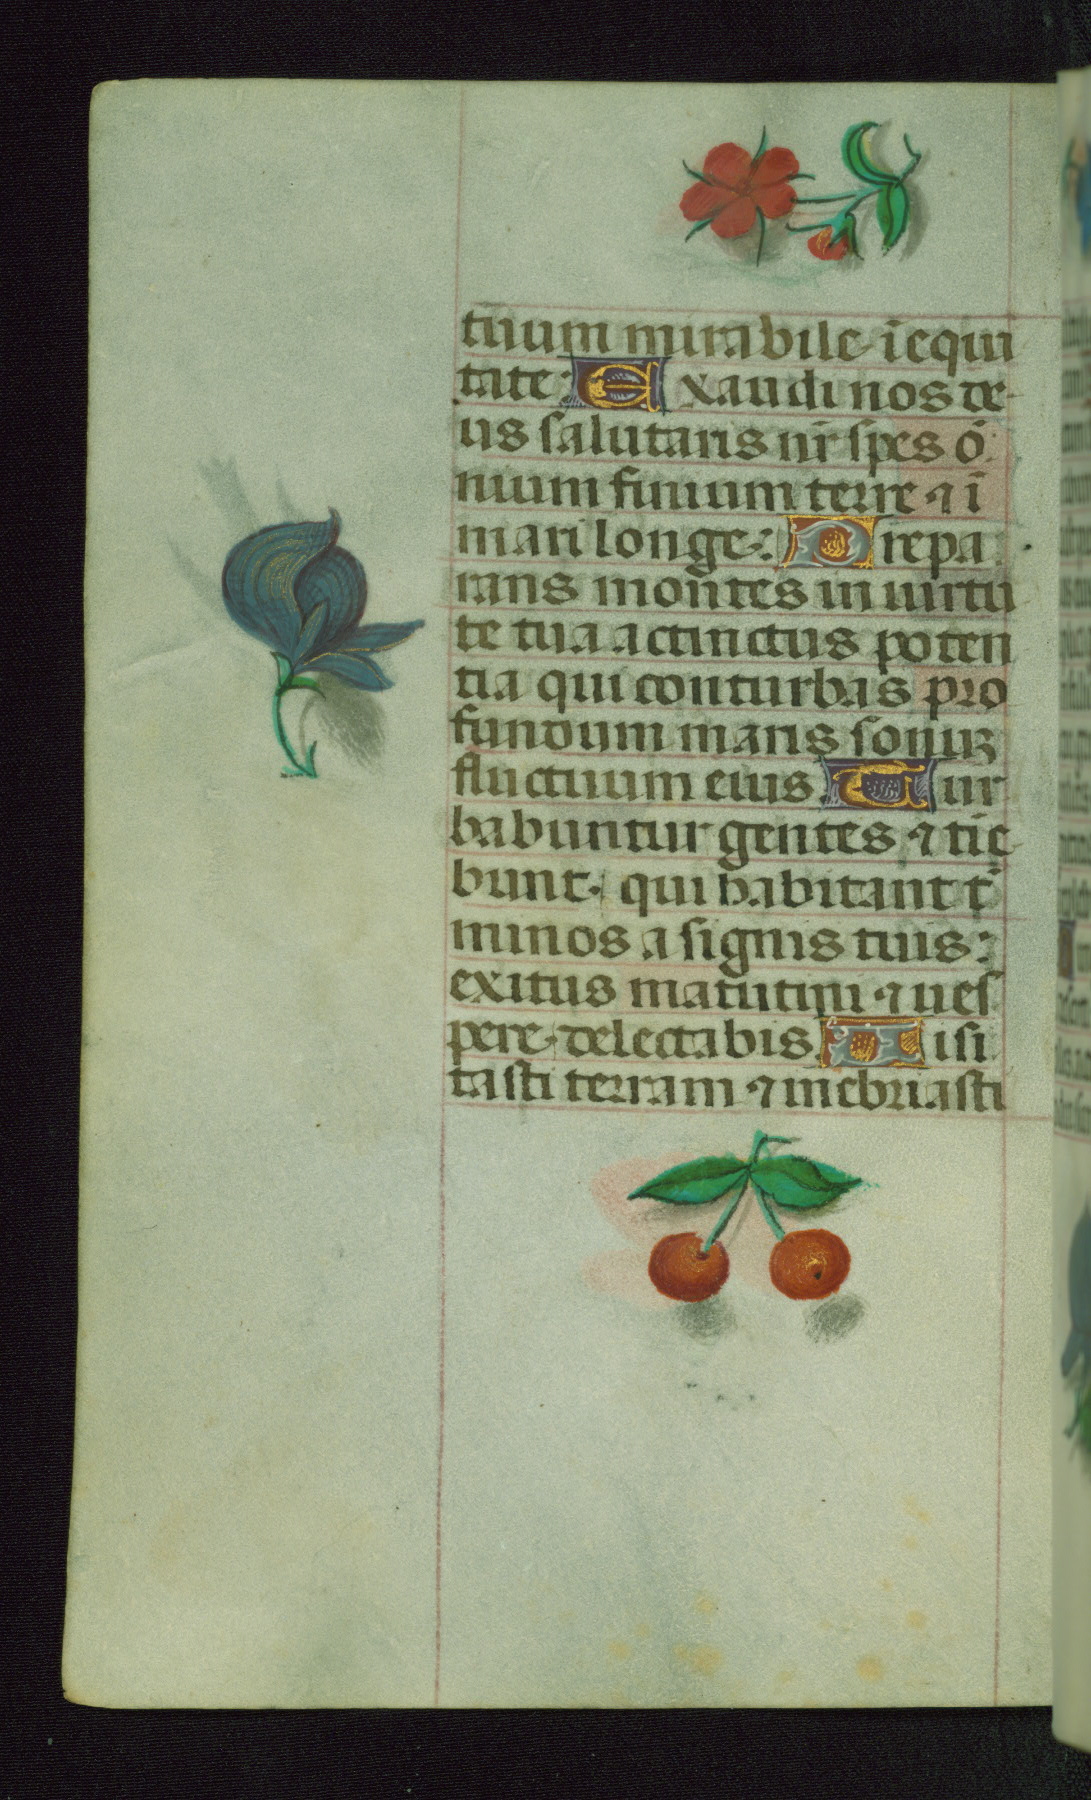 tuum mirabile ī equi
tate: Exaudi nos de-
us salutaris nr̄ spes ō
nium finium terre ⁊ ī
mari longe: Prepa
rans montes in uirtu
te tua accinctus poten
tia qui conturbas pro
fundum maris sonuꝫ
fluctuum eius Tur
babuntur gentes ⁊ tīe
bunt. qui habitant t̄
minos a signis tuis:
exitus matutini ⁊ ues
pere delectabis Uisi
tasti terram ⁊ inebriasti